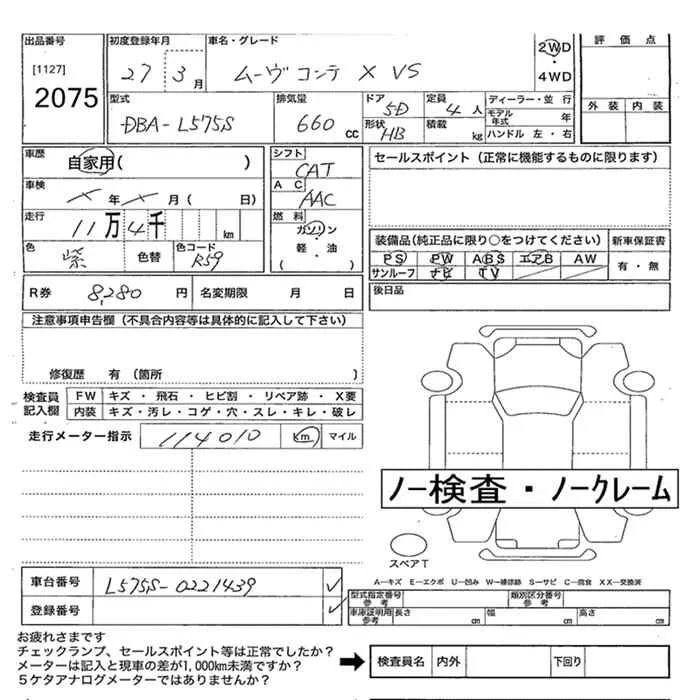 出品番号 初度登録年月 車名・グレード 2WD 評価点
[1127] 27 3月 ムーヴ コンテ X VS 4WD
2075 外装 内装
型式 排気量 ドア 5D 定員 4人 ディーラー・並行
DBA-L575S 660 cc 形状 HB 積載 kg モデル年式 年
ハンドル 左・右
車歴 自家用( ) シフト CAT セールスポイント(正常に機能するものに限ります)
車検 ×年×月( 日) AC AAC
走行 11万4千 km 燃料 ガソリン
色 紫 色替 色コード R59 軽・油 ( )
装備品(純正品に限り○をつけてください) 新車保証書
PS PW ABS エアB AW 有・無
サンルーフ ナビ TV
R券 8,280円 名変期限 月 日 後日品
注意事項申告欄(不具合内容等は具体的に記入して下さい)
修復歴 有(箇所 )
検査員記入欄 FW キズ・飛石・ヒビ割・リペア跡・X要
内装 キズ・汚レ・コゲ・穴・スレ・キレ・破レ
走行メーター指示 114010 Km マイル
ノー検査・ノークレーム
スペアT
A―キズ E―エクボ U―凹み W―補修跡 S―サビ C―腐食 XX―交換済
車台番号 L575S-0221439 ✓
登録番号 ✓
型式指定番号 参考 類別区分番号 参考
車庫証明用 参考 長さ cm 幅 cm 高さ cm
お疲れさまです
チェックランプ、セールスポイント等は正常でしたか?
メーターは記入と現車の差が1,000km未満ですか?
5ケタアナログメーターではありませんか?
➡ 検査員名 内外 下回り